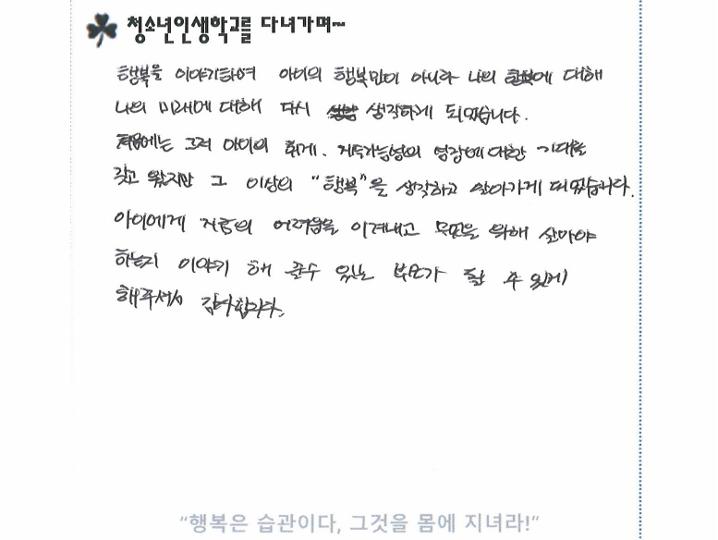 청소년인생학교를 다녀가며~
행복을 이야기하며 아이의 행복만이 아니라 나의 행복에 대해
나의 미래에 대해 다시 생각하게 되었습니다.
처음에는 그저 아이의 휴게, 의 영강에 대한 기대를
갖고 왔지만 그 이상의 "행복"을 생각하고 돌아가게 되었습니다.
아이에게 지금의 어려움을 이겨내고 무엇을 위해 살아야
하는지 이야기 해 줄수 있는 부모가 될 수 있게
해주셔서 감사합니다.
"행복은 습관이다, 그것을 몸에 지녀라!"